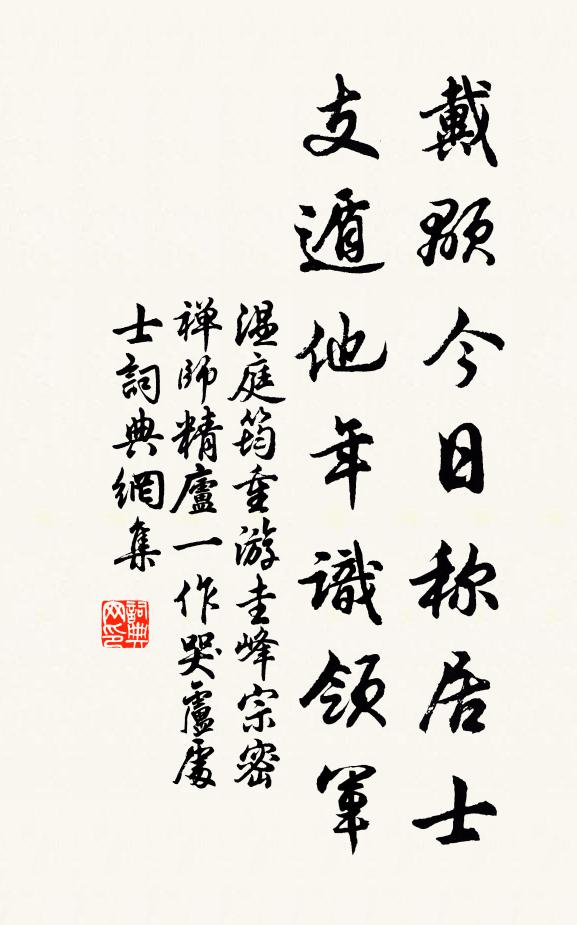 戴顒今日称居士
支遁他年識領軍
温庭筠重游圭峰宗密
禅師精廬一作哭盧處
士詞典網集
詞典网印